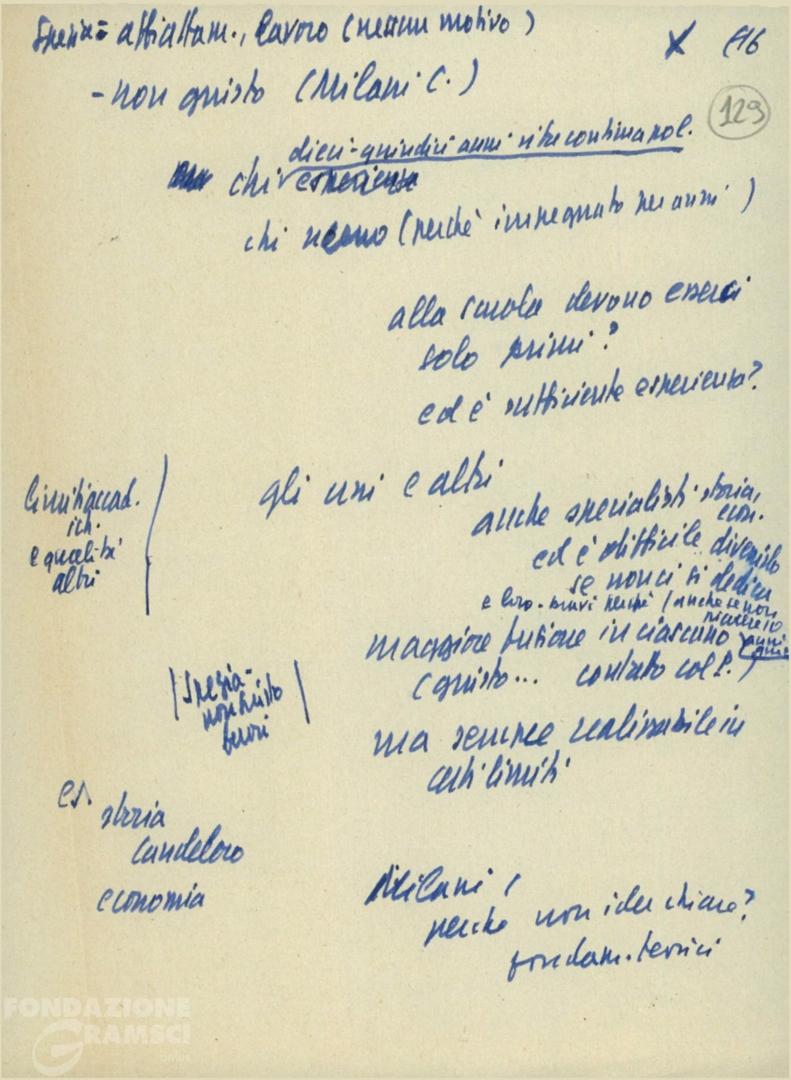 Spezia = affiattam., lavoro (nessun motivo)
X
129
- non giusto (Milani C.)
dieci-quindici anni
chi esperienza
chi meno (perchè impegnato per anni)
alla scuola devono esserci
solo primi?
ed è sufficiente esperienza?
gli uni e altri
limiti accad.
e qualità
altri
anche specialisti storia,
econ.
ed è difficile
se non ci si dedica
e loro - bravi perchè (anche se non
maggiore fusione in ciascuno
(giusto... contatto col P.)
Spezia-
non giusto
ma sempre realizzabile in
certi limiti
es.
storia
Candeloro
economia
Milani
perchè non idee chiare?
fondam. teorici
FONDAZIONE
GRAMSCI
onlus